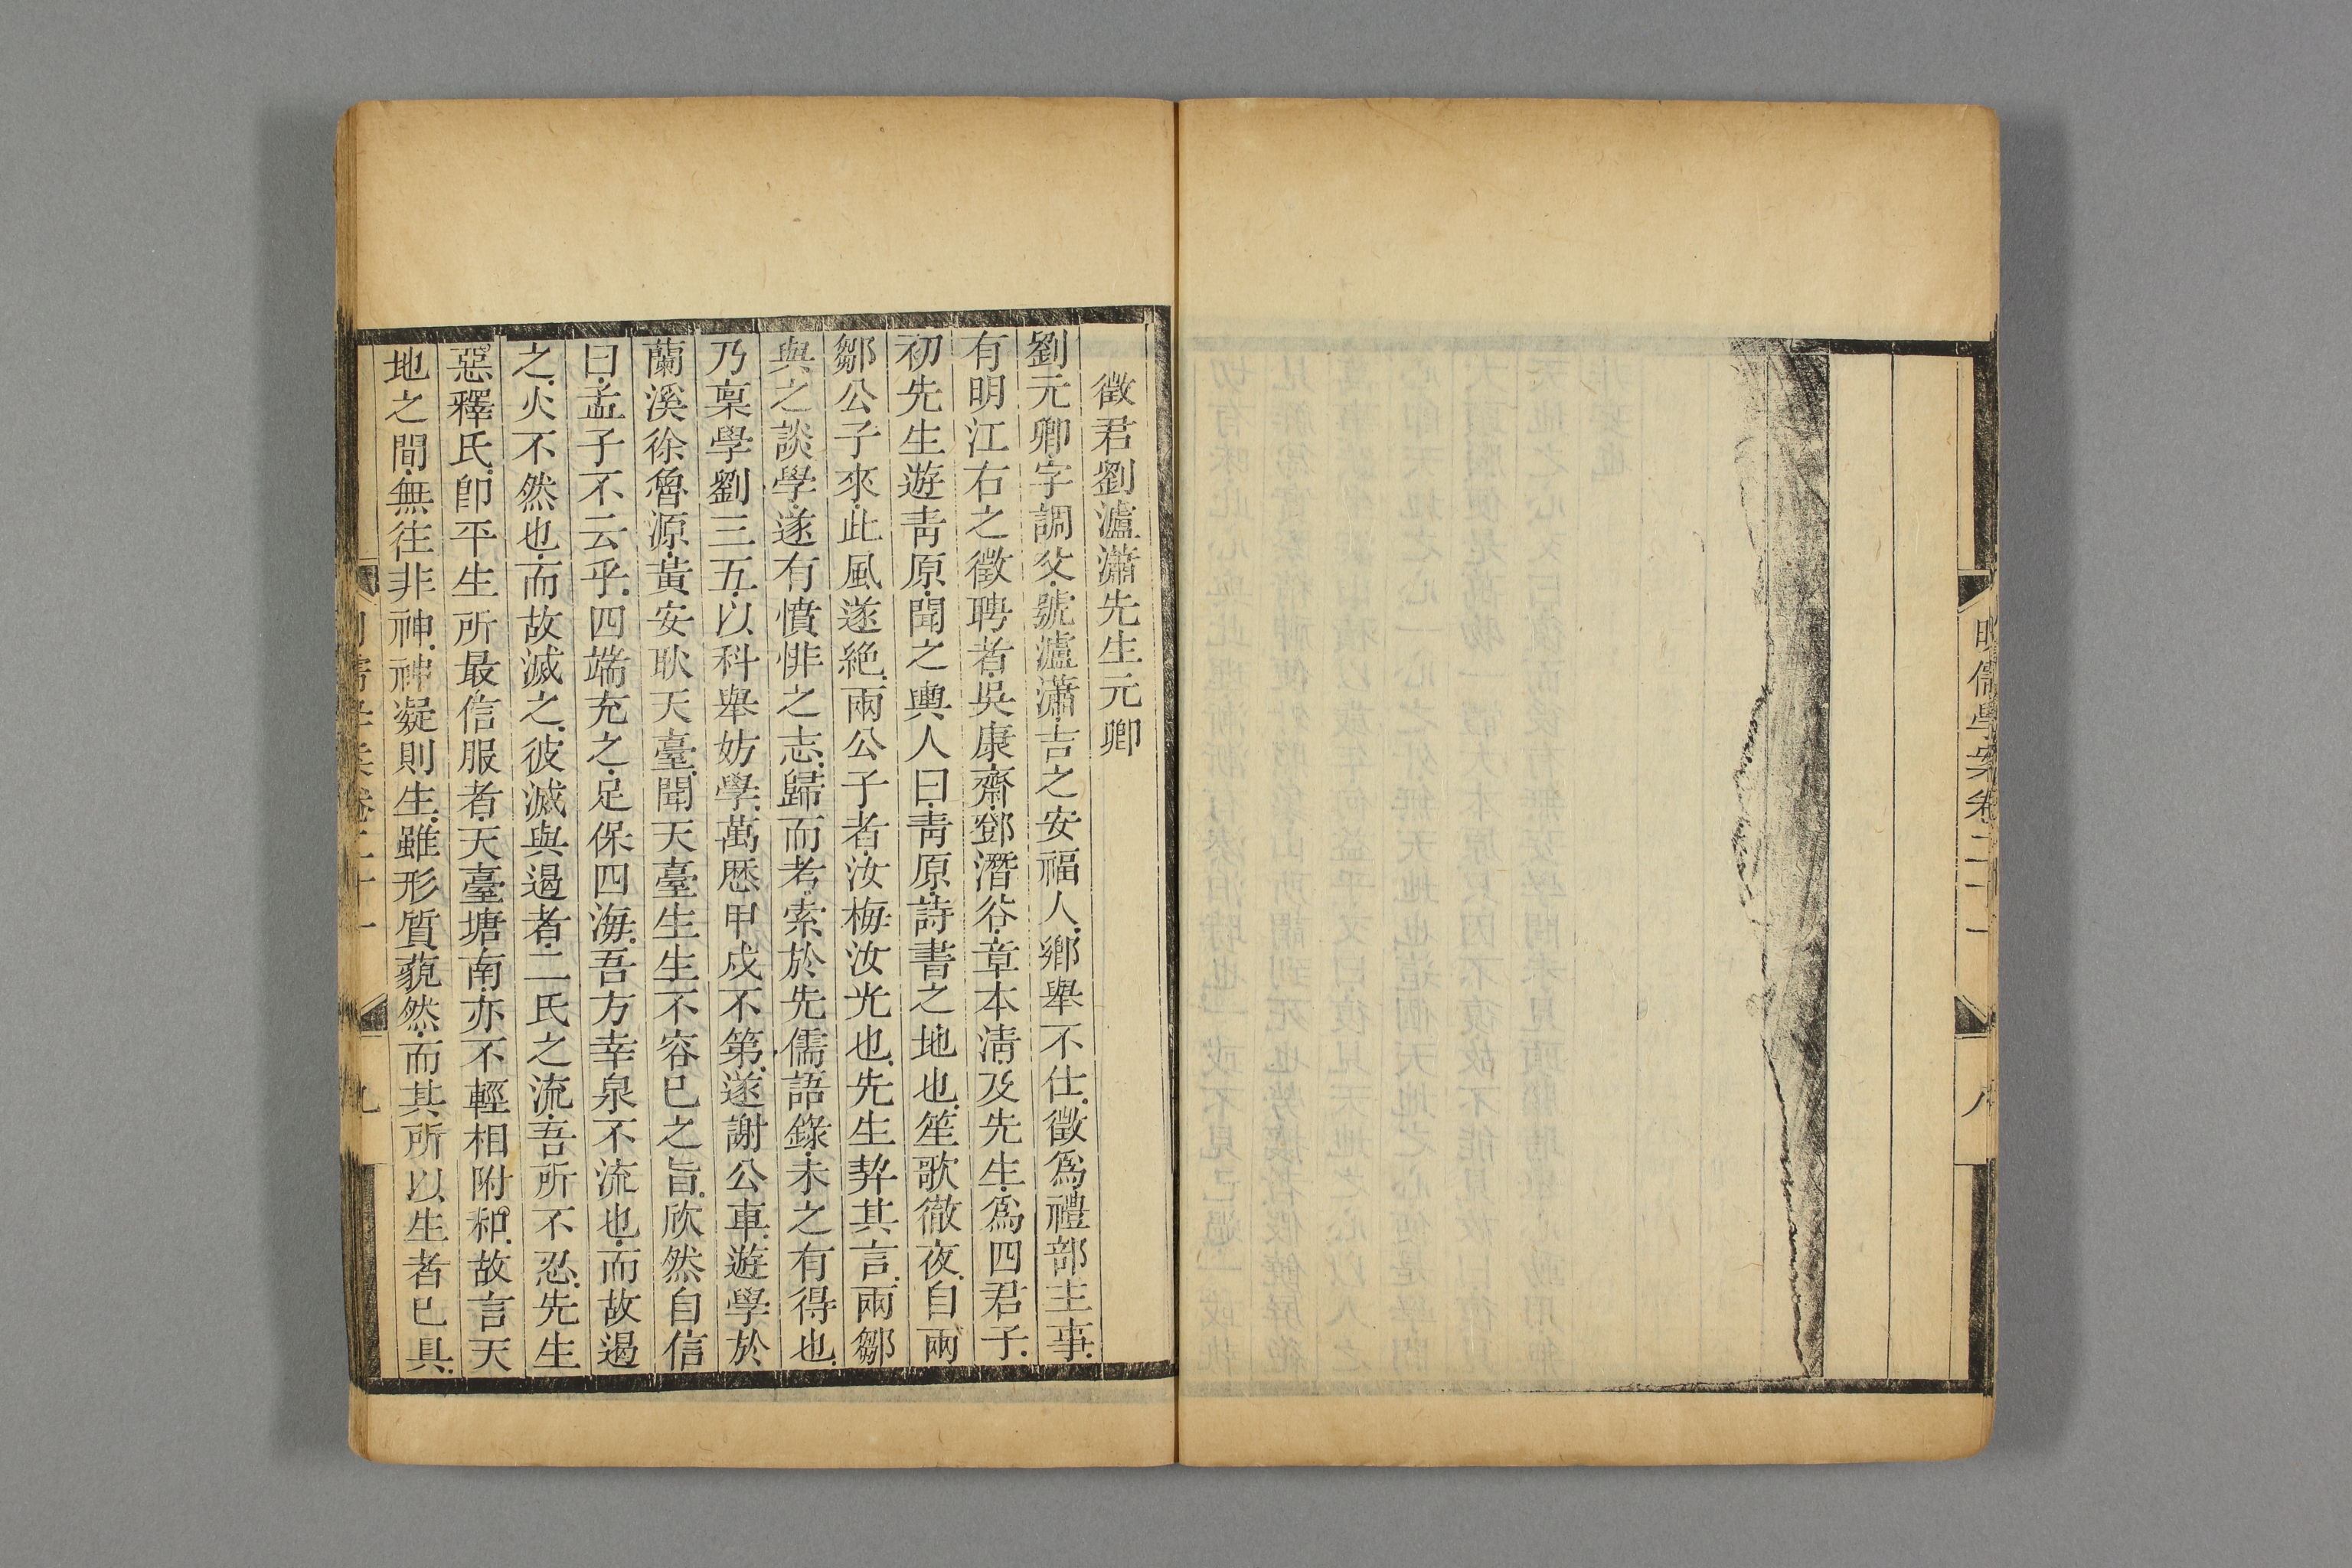 明儒學案卷二十一
八
徵君劉瀘瀟先生元卿
劉元卿字調父號瀘瀟吉之安福人鄉舉不仕徵爲禮部主事
有明江右之徵聘者吳康齋鄧潛谷章本清及先生爲四君子
初先生遊青原聞之輿人曰青原詩書之地也笙歌徹夜自兩
鄒公子來此風遂絶兩公子者汝梅汝光也先生契其言兩鄒
與之談學遂有憤悱之志歸而考索於先儒語錄未之有得也
乃稟學劉三五以科舉妨學萬歷甲戌不第遂謝公車遊學於
蘭溪徐魯源黃安耿天臺聞天臺生生不容已之旨欣然自信
曰孟子不云乎四端充之足保四海吾方幸泉不流也而故遏
之火不然也而故滅之彼滅與遏者二氏之流吾所不忍先生
惡釋氏卽平生所最信服者天臺塘南亦不輕相附和故言天
地之間無往非神神凝則生雖形質藐然而其所以生者已具
卷二十一
九